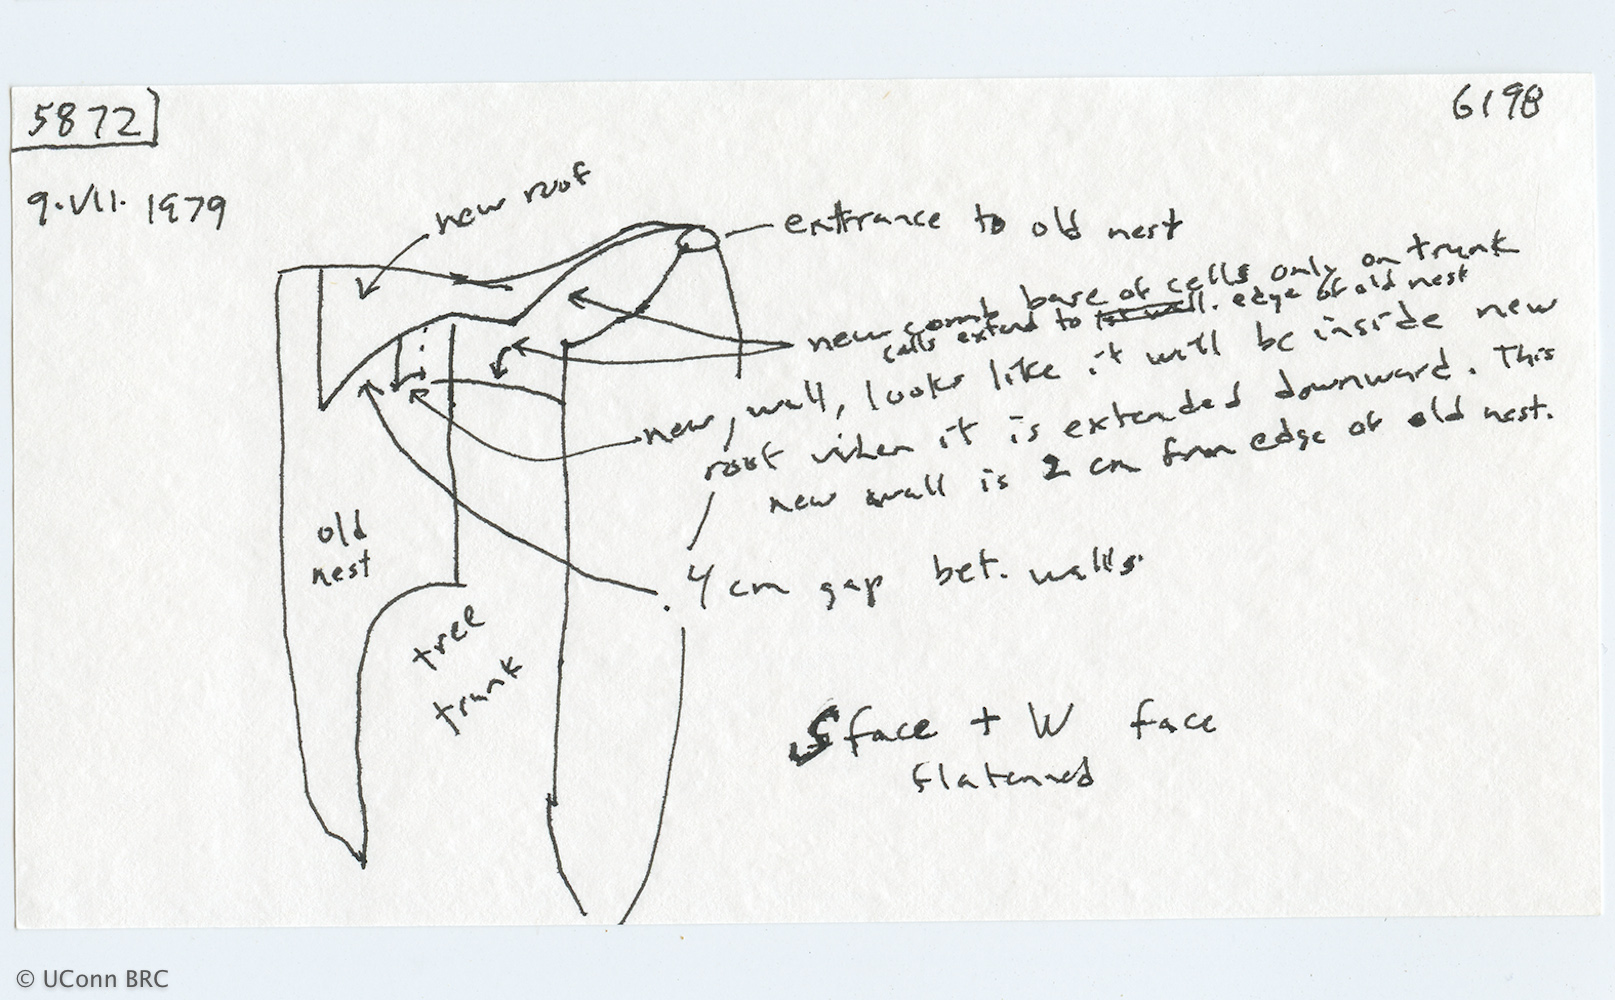 5872
6198
9.VII. 1979
new roof
entrance to old nest
new comb base of cells only on trunk
cells extend to 1st wall. edge of old nest
new, wall, looks like it will be inside new
roof when it is extended downward. This
new wall is 2 cm from edge of old nest.
old
nest
4 cm gap bet. walls.
tree
trunk
S face + W face
flatenned
© UConn BRC